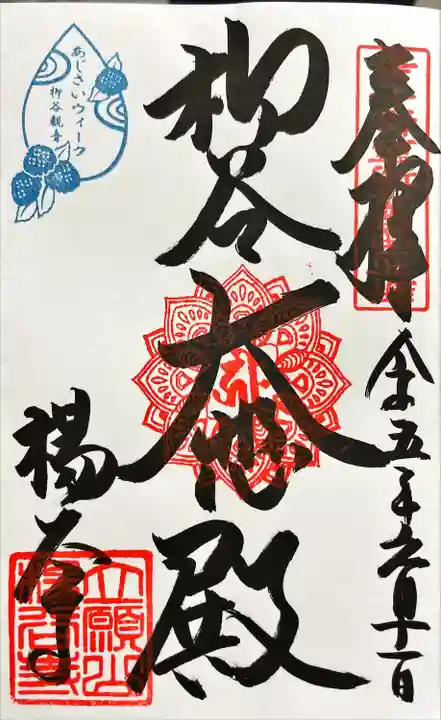 奉拝
令和五年六月十一日
柳谷
大悲殿
楊谷寺
あじさいウィーク
柳谷観音
立願山
楊谷寺